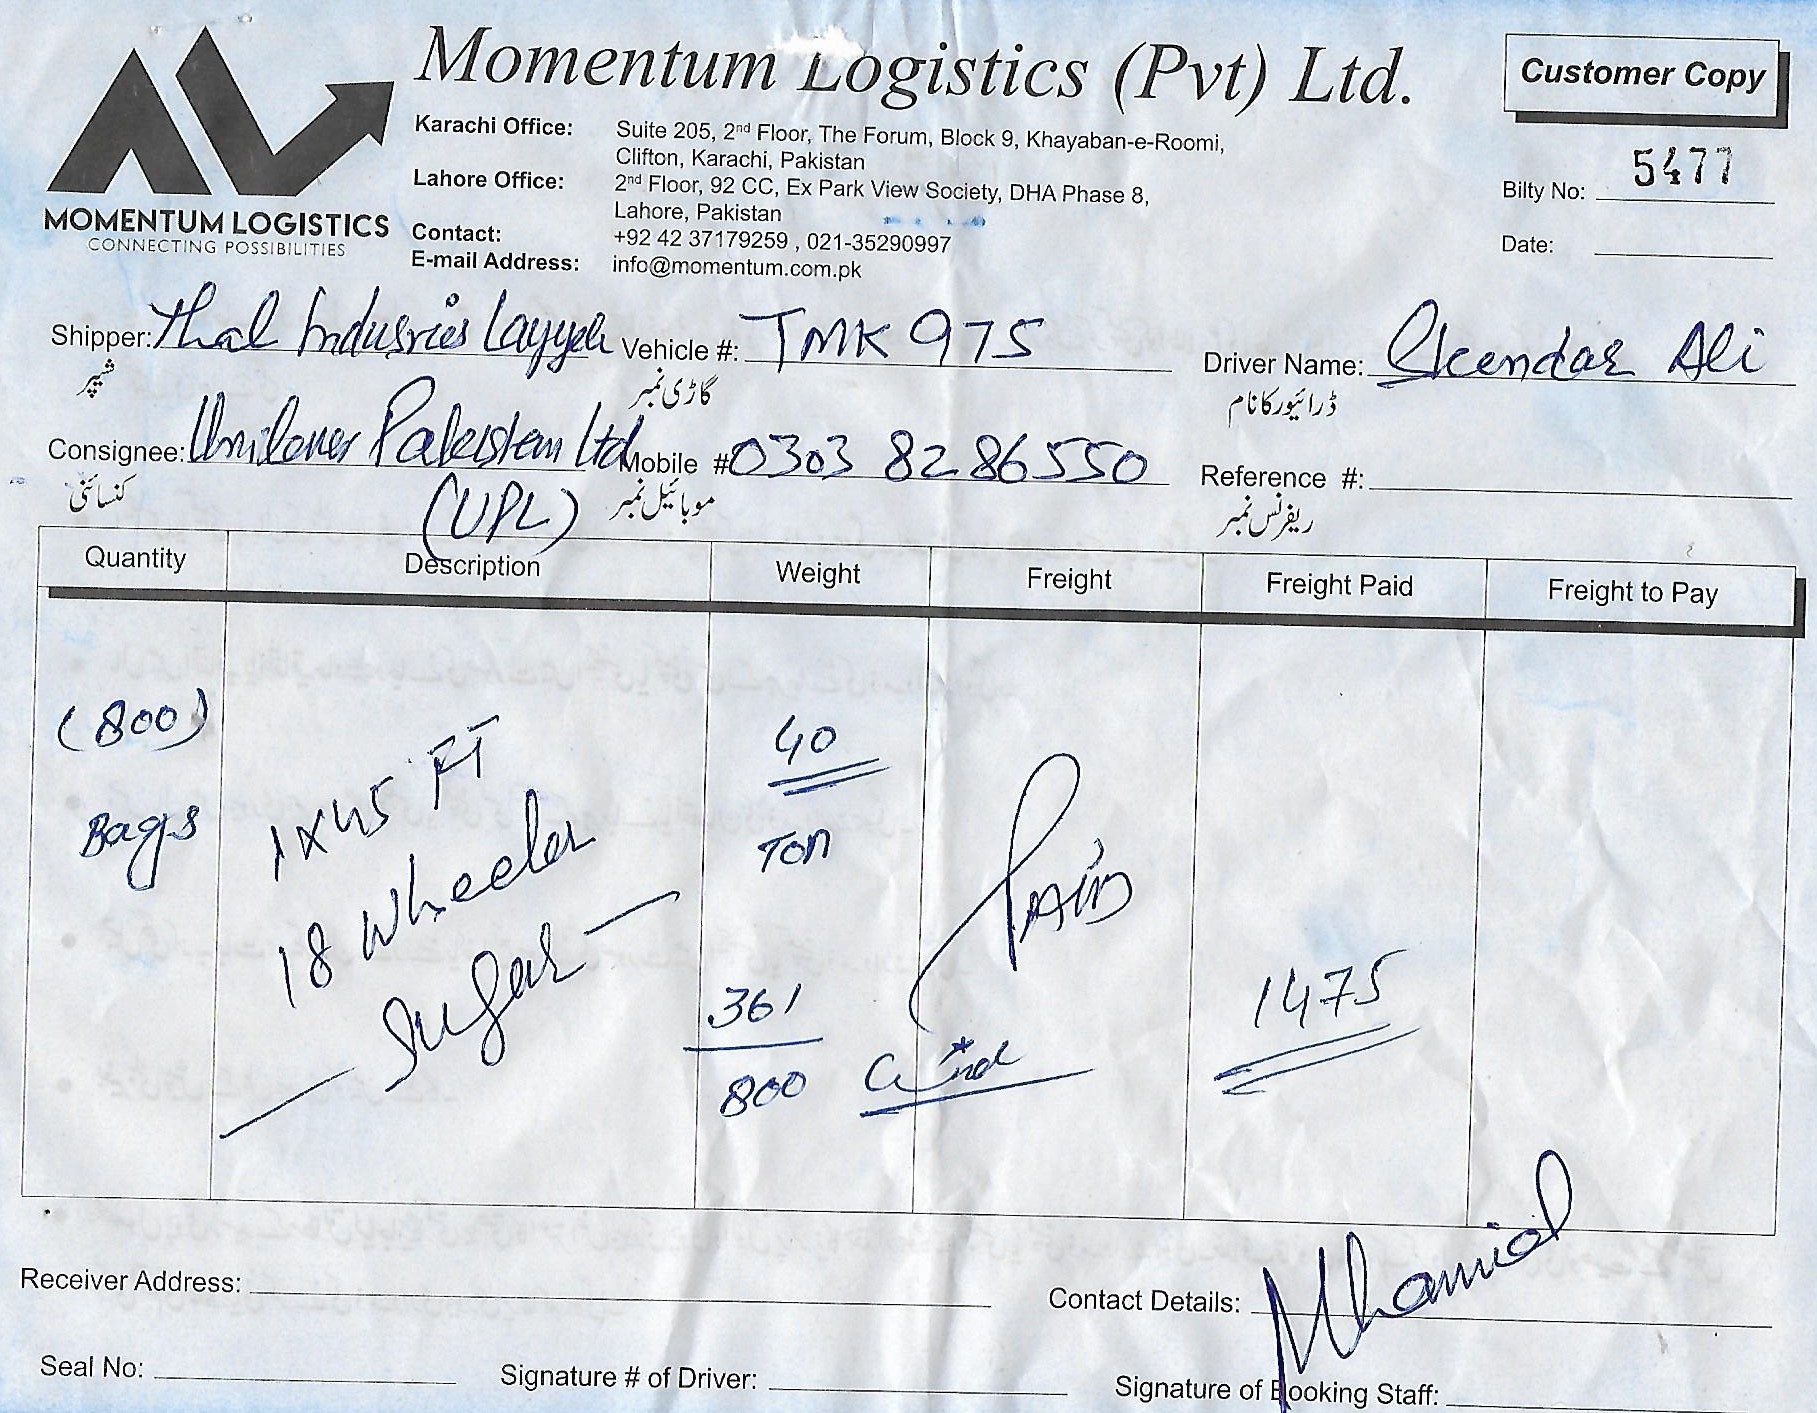 Momentum Logistics (Pvt) Ltd.
Customer Copy
MOMENTUM LOGISTICS
CONNECTING POSSIBILITIES
Karachi Office: Suite 205, 2nd Floor, The Forum, Block 9, Khayaban-e-Roomi,
Clifton, Karachi, Pakistan
Lahore Office: 2nd Floor, 92 CC, Ex Park View Society, DHA Phase 8,
Lahore, Pakistan
Contact: +92 42 37179259 , 021-35290997
E-mail Address: info@momentum.com.pk
Bilty No: 5477
Date:
Shipper: Thal Indusries Layyah Vehicle #: TMK 975 Driver Name: Skendar Ali
شپر گاڑی نمبر ڈرائیور کا نام
Consignee: Unilever Pakistan Ltd Mobile # 0303 8286550 Reference #:
(UPL)
کنسائنی موبائیل نمبر ریفرنس نمبر
Quantity Description Weight Freight Freight Paid Freight to Pay
(800)
Bags
1X45 FT
18 Wheeler
Sugar
40
TON
361
800
PAID
1475
Receiver Address: Contact Details:
Seal No: Signature # of Driver: Signature of Booking Staff: